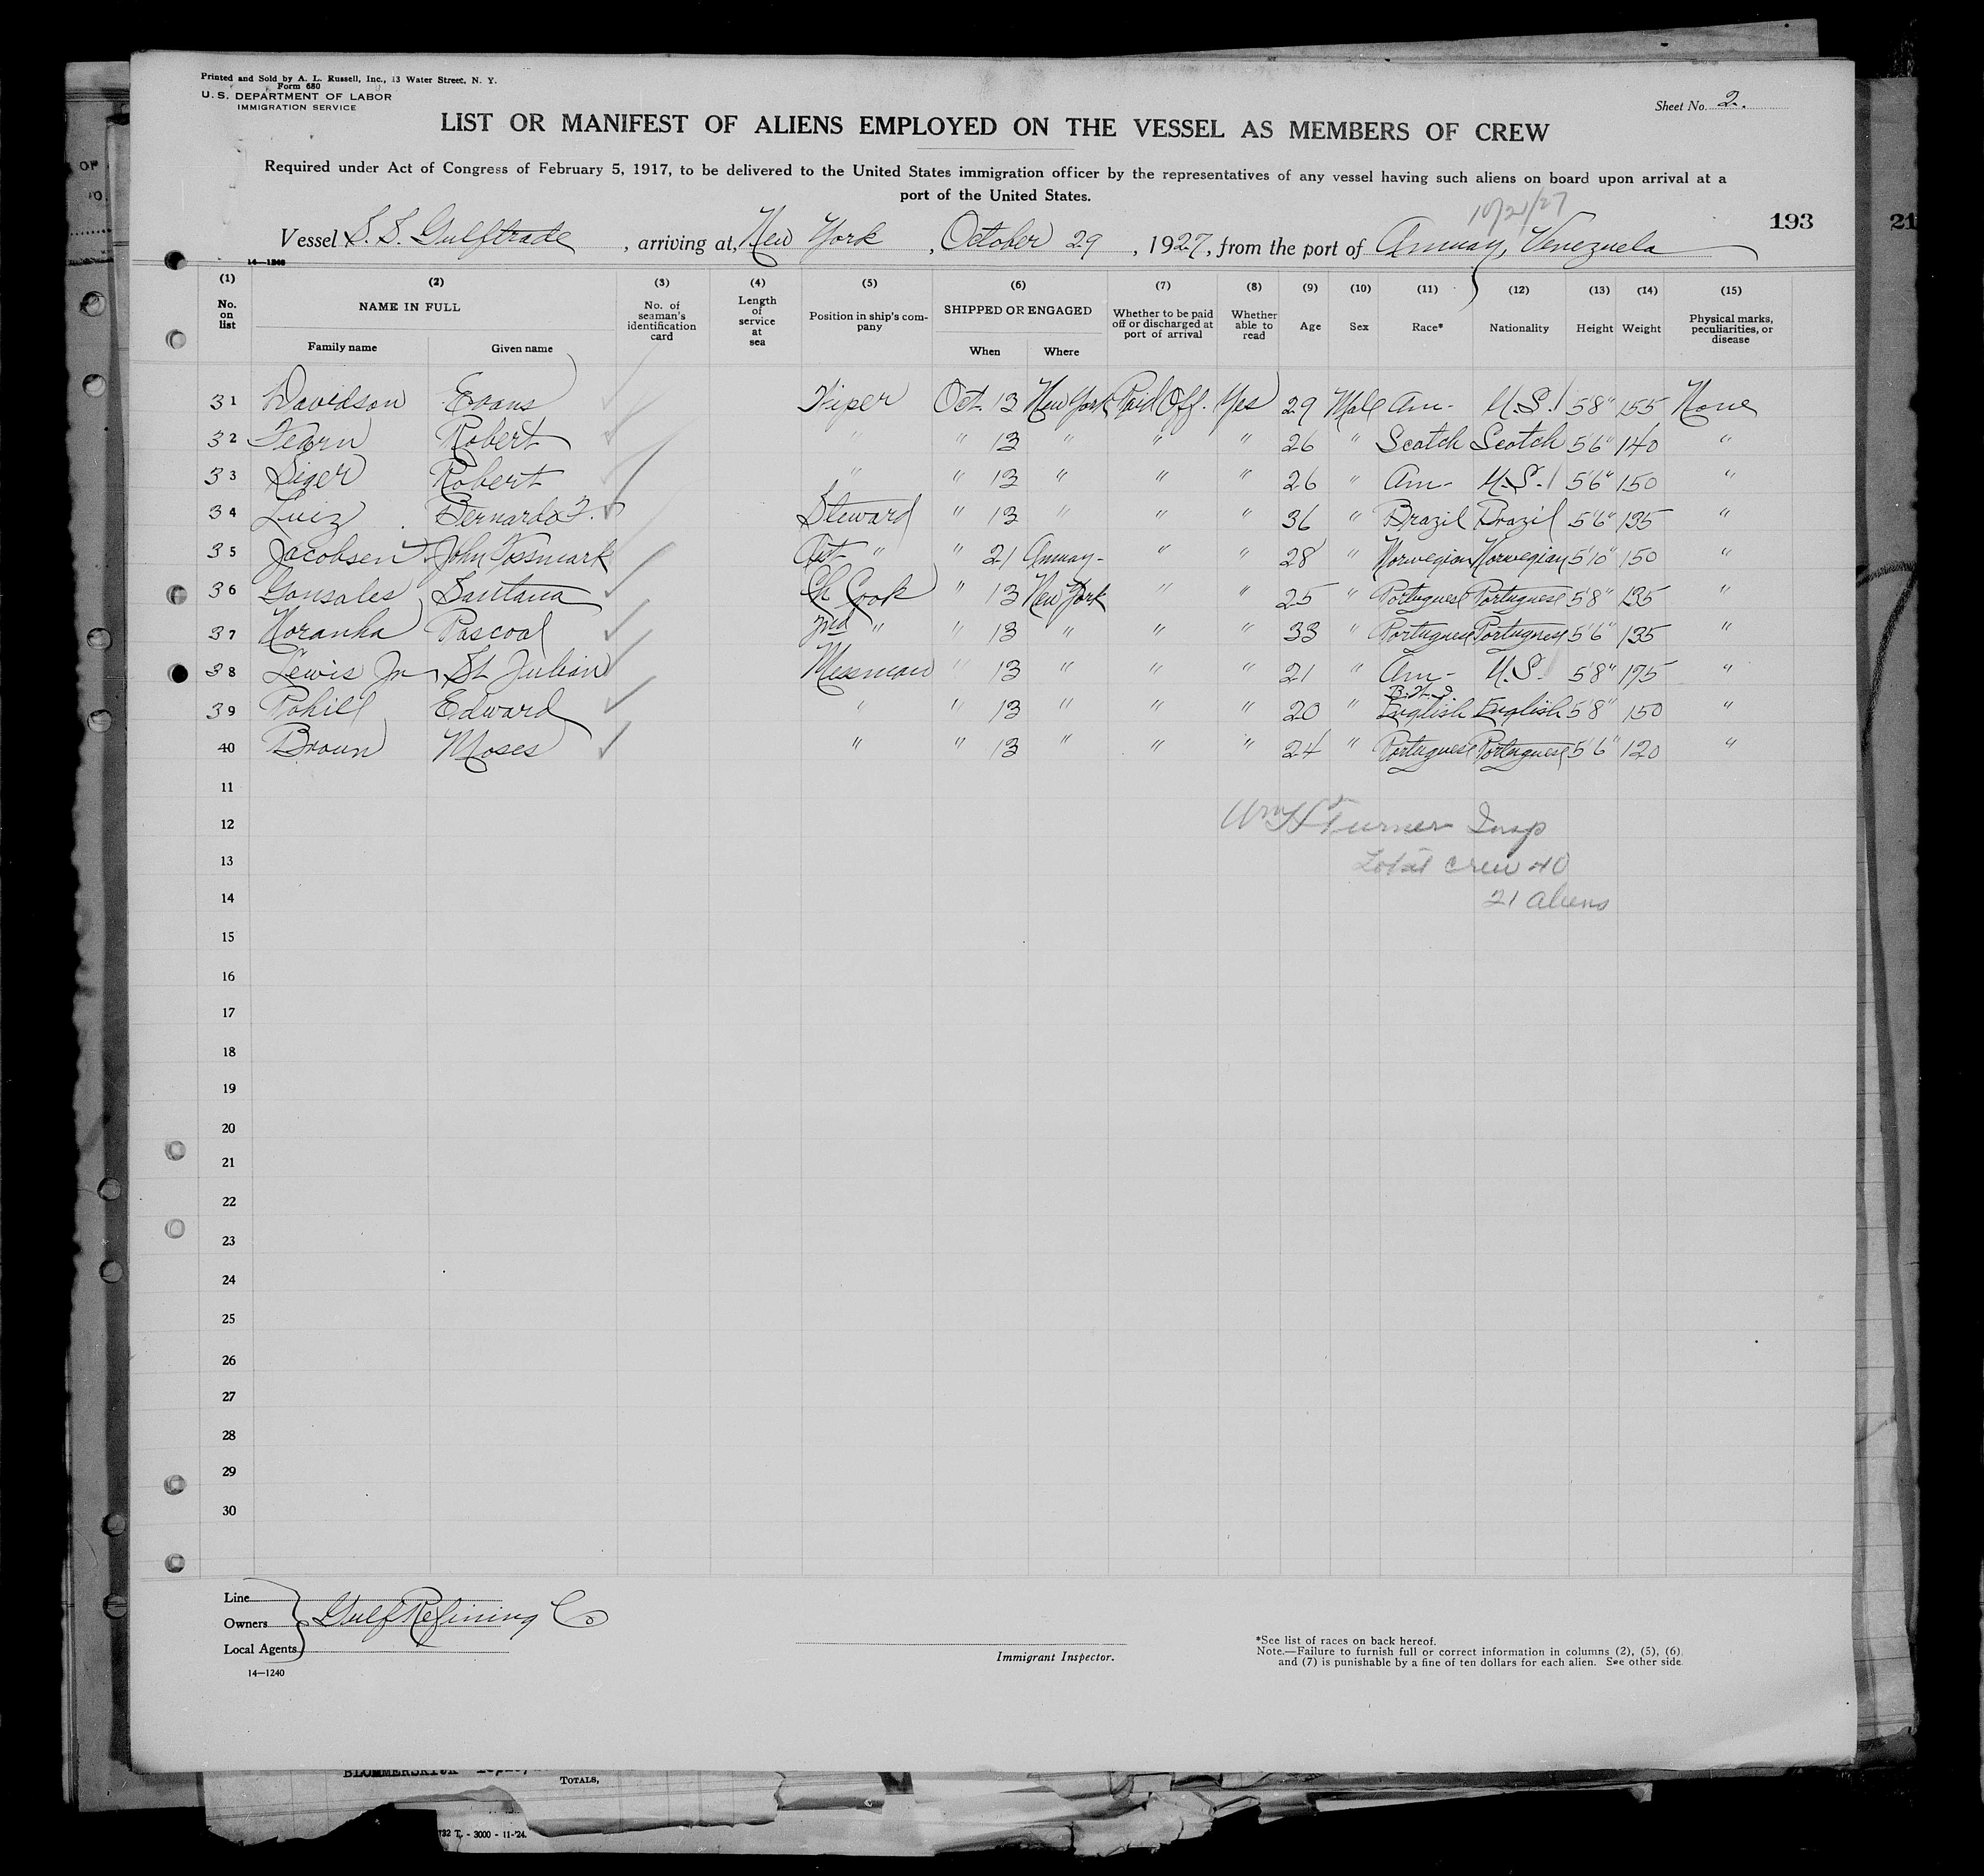 Printed and Sold by A. L. Russell, Inc., 13 Water Street, N. Y.
Form 680
U. S. DEPARTMENT OF LABOR
IMMIGRATION SERVICE
Sheet No. 2.
LIST OR MANIFEST OF ALIENS EMPLOYED ON THE VESSEL AS MEMBERS OF CREW
Required under Act of Congress of February 5, 1917, to be delivered to the United States immigration officer by the representatives of any vessel having such aliens on board upon arrival at a
port of the United States.
10/21/27
193
21
Vessel S. S. Gulftrade, arriving at, New York, October 29, 1927, from the port of Amuay, Venezuela
14—1240
(1) (2) (3) (4) (5) (6) (7) (8) (9) (10) (11) (12) (13) (14) (15)
No. on list
NAME IN FULL
Family name
Given name
No. of seaman's identification card
Length of service at sea
Position in ship's company
SHIPPED OR ENGAGED
When
Where
Whether to be paid off or discharged at port of arrival
Whether able to read
Age
Sex
Race*
Nationality
Height
Weight
Physical marks, peculiarities, or disease
31 Davidson Evans Wiper Oct. 13 New York Paid Off. Yes 29 Male Am- U.S. 5'8" 155 None
32 Fearn Robert " " 13 " " " 26 " Scotch Scotch 5'6" 140 "
33 Siger Robert " " 13 " " " 26 " Am- U.S. 5'6" 150 "
34 Luiz Bernardo F. Steward " 13 " " " 36 " Brazil Brazil 5'6" 135 "
35 Jacobsen John " " 21 Amuay- " " 28 " Norwegian Norwegian 5'10" 150 "
36 Gonsales Santana Ch Cook " 13 New York " " 25 " Portuguese Portuguese 5'8" 135 "
37 Noranha Pascoal 2nd " " 13 " " " 33 " Portuguese Portuguese 5'6" 135 "
38 Lewis Jr St Julian Messman " 13 " " " 21 " Am- U.S. 5'8" 175 "
B.W.I.
39 Pohill Edward " " 13 " " " 20 " English English 5'8" 150 "
40 Broun Moses " " 13 " " " 24 " Portuguese Portuguese 5'6" 120 "
11
12 Turner Insp
13 Total crew 40
14 21 aliens
15
16
17
18
19
20
21
22
23
24
25
26
27
28
29
30
Line
Owners Gulf Refining Co
Local Agents
14—1240
Immigrant Inspector.
*See list of races on back hereof.
Note.—Failure to furnish full or correct information in columns (2), (5), (6),
and (7) is punishable by a fine of ten dollars for each alien. See other side.
TOTALS,
732 T. - 3000 - 11-'24.